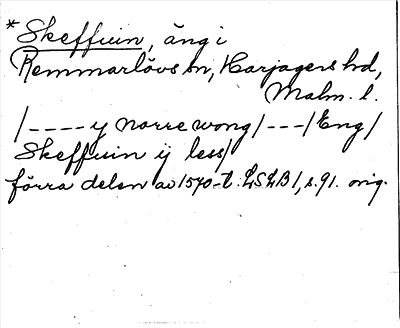 * Skeffuin, äng i
Remmarlövs sn, Harjagers hd,
Malm. l.
/---- y norre wong/---/Eng/
Skeffuin ij less/
förra delen av 1570-t. LSLB 1, s. 91. orig.